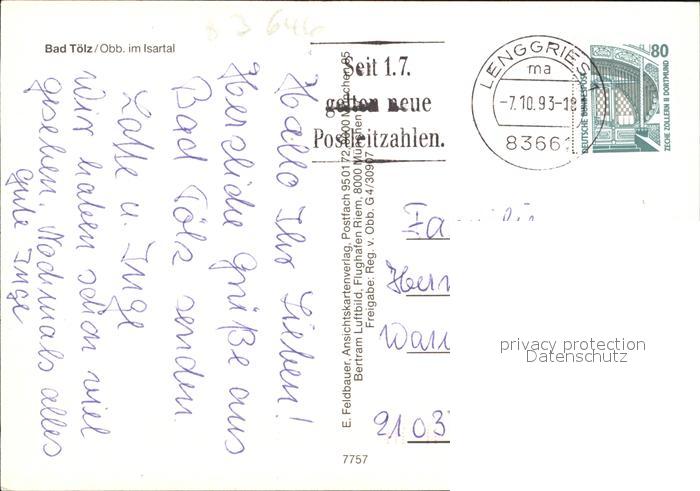 83646
Bad Tölz/Obb. im Isartal
Hallo Ihr Lieben!
Herzliche Grüße aus
Bad Tölz senden
Lotte u. Inge
Wir haben schon viel
gesehen. Nochmals alles
gute Inge
E. Feldbauer, Ansichtskartenverlag, Postfach 95 01 72, 8000 München 95
Bertram Luftbild, Flughafen Riem, 8000 München
Freigabe: Reg. v. Obb. G 4/30907
7757
Seit 1.7.
gelten neue
Postleitzahlen.
LENGGRIES 1
ma
-7.10.93-18
8366
80
DEUTSCHE BUNDESPOST
ZECHE ZOLLERN II DORTMUND
Fa
Herr
Wan
2103
privacy protection
Datenschutz